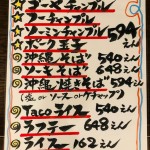 ゴーヤチャンプル
フーチャンプル
ソーミンチャンプル 594えん
ポーク玉子 えん
沖縄そば 540えん
ソーキそば 648えん
沖縄焼きそば 594えん
(塩 or ソース or ケチャップ)
Taco ライス 540えん
ラフテー 648えん
ライス 162えん